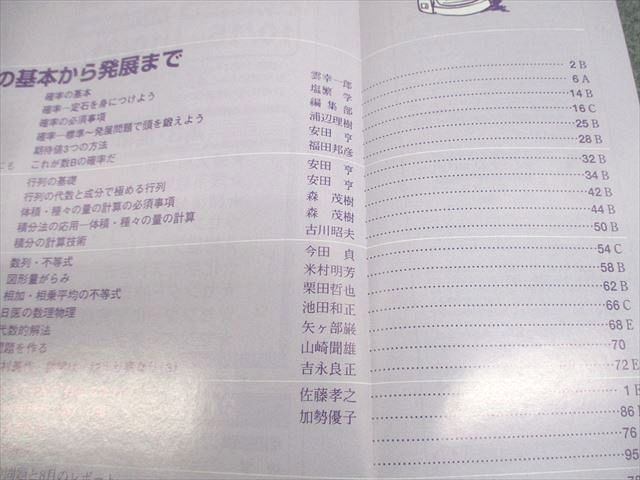 の基本から発展まで
確率の基本 雲幸一郎 2 B
確率―定石を身につけよう 塩繁 学 6 A
確率の必須事項 編集部 14 B
確率―標準～発展問題で頭を鍛えよう 浦辺理樹 16 C
期待値3つの方法 安田 亨 25 B
にも これが数Bの確率だ 福田邦彦 28 B
行列の基礎 安田 亨 32 B
行列の代数と成分で極める行列 安田 亨 34 B
体積・種々の量の計算の必須事項 森 茂樹 42 B
積分法の応用―体積・種々の量の計算 森 茂樹 44 B
積分の計算技術 古川昭夫 50 B
数列・不等式 今田 貞 54 C
図形量がらみ 米村明芳 58 B
相加・相乗平均の不等式 栗田哲也 62 B
日医の数理物理 池田和正 66 C
代数的解法 矢ヶ部巌 68 E
問題を作る 山崎聞雄 70
吉永良正 72 E
佐藤孝之 1 E
加勢優子 86
76
95
と8月のレポート